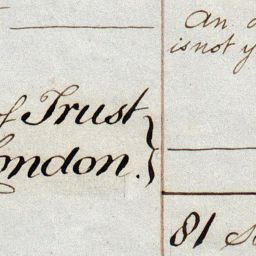 of Trust
London.
An
is not y
81